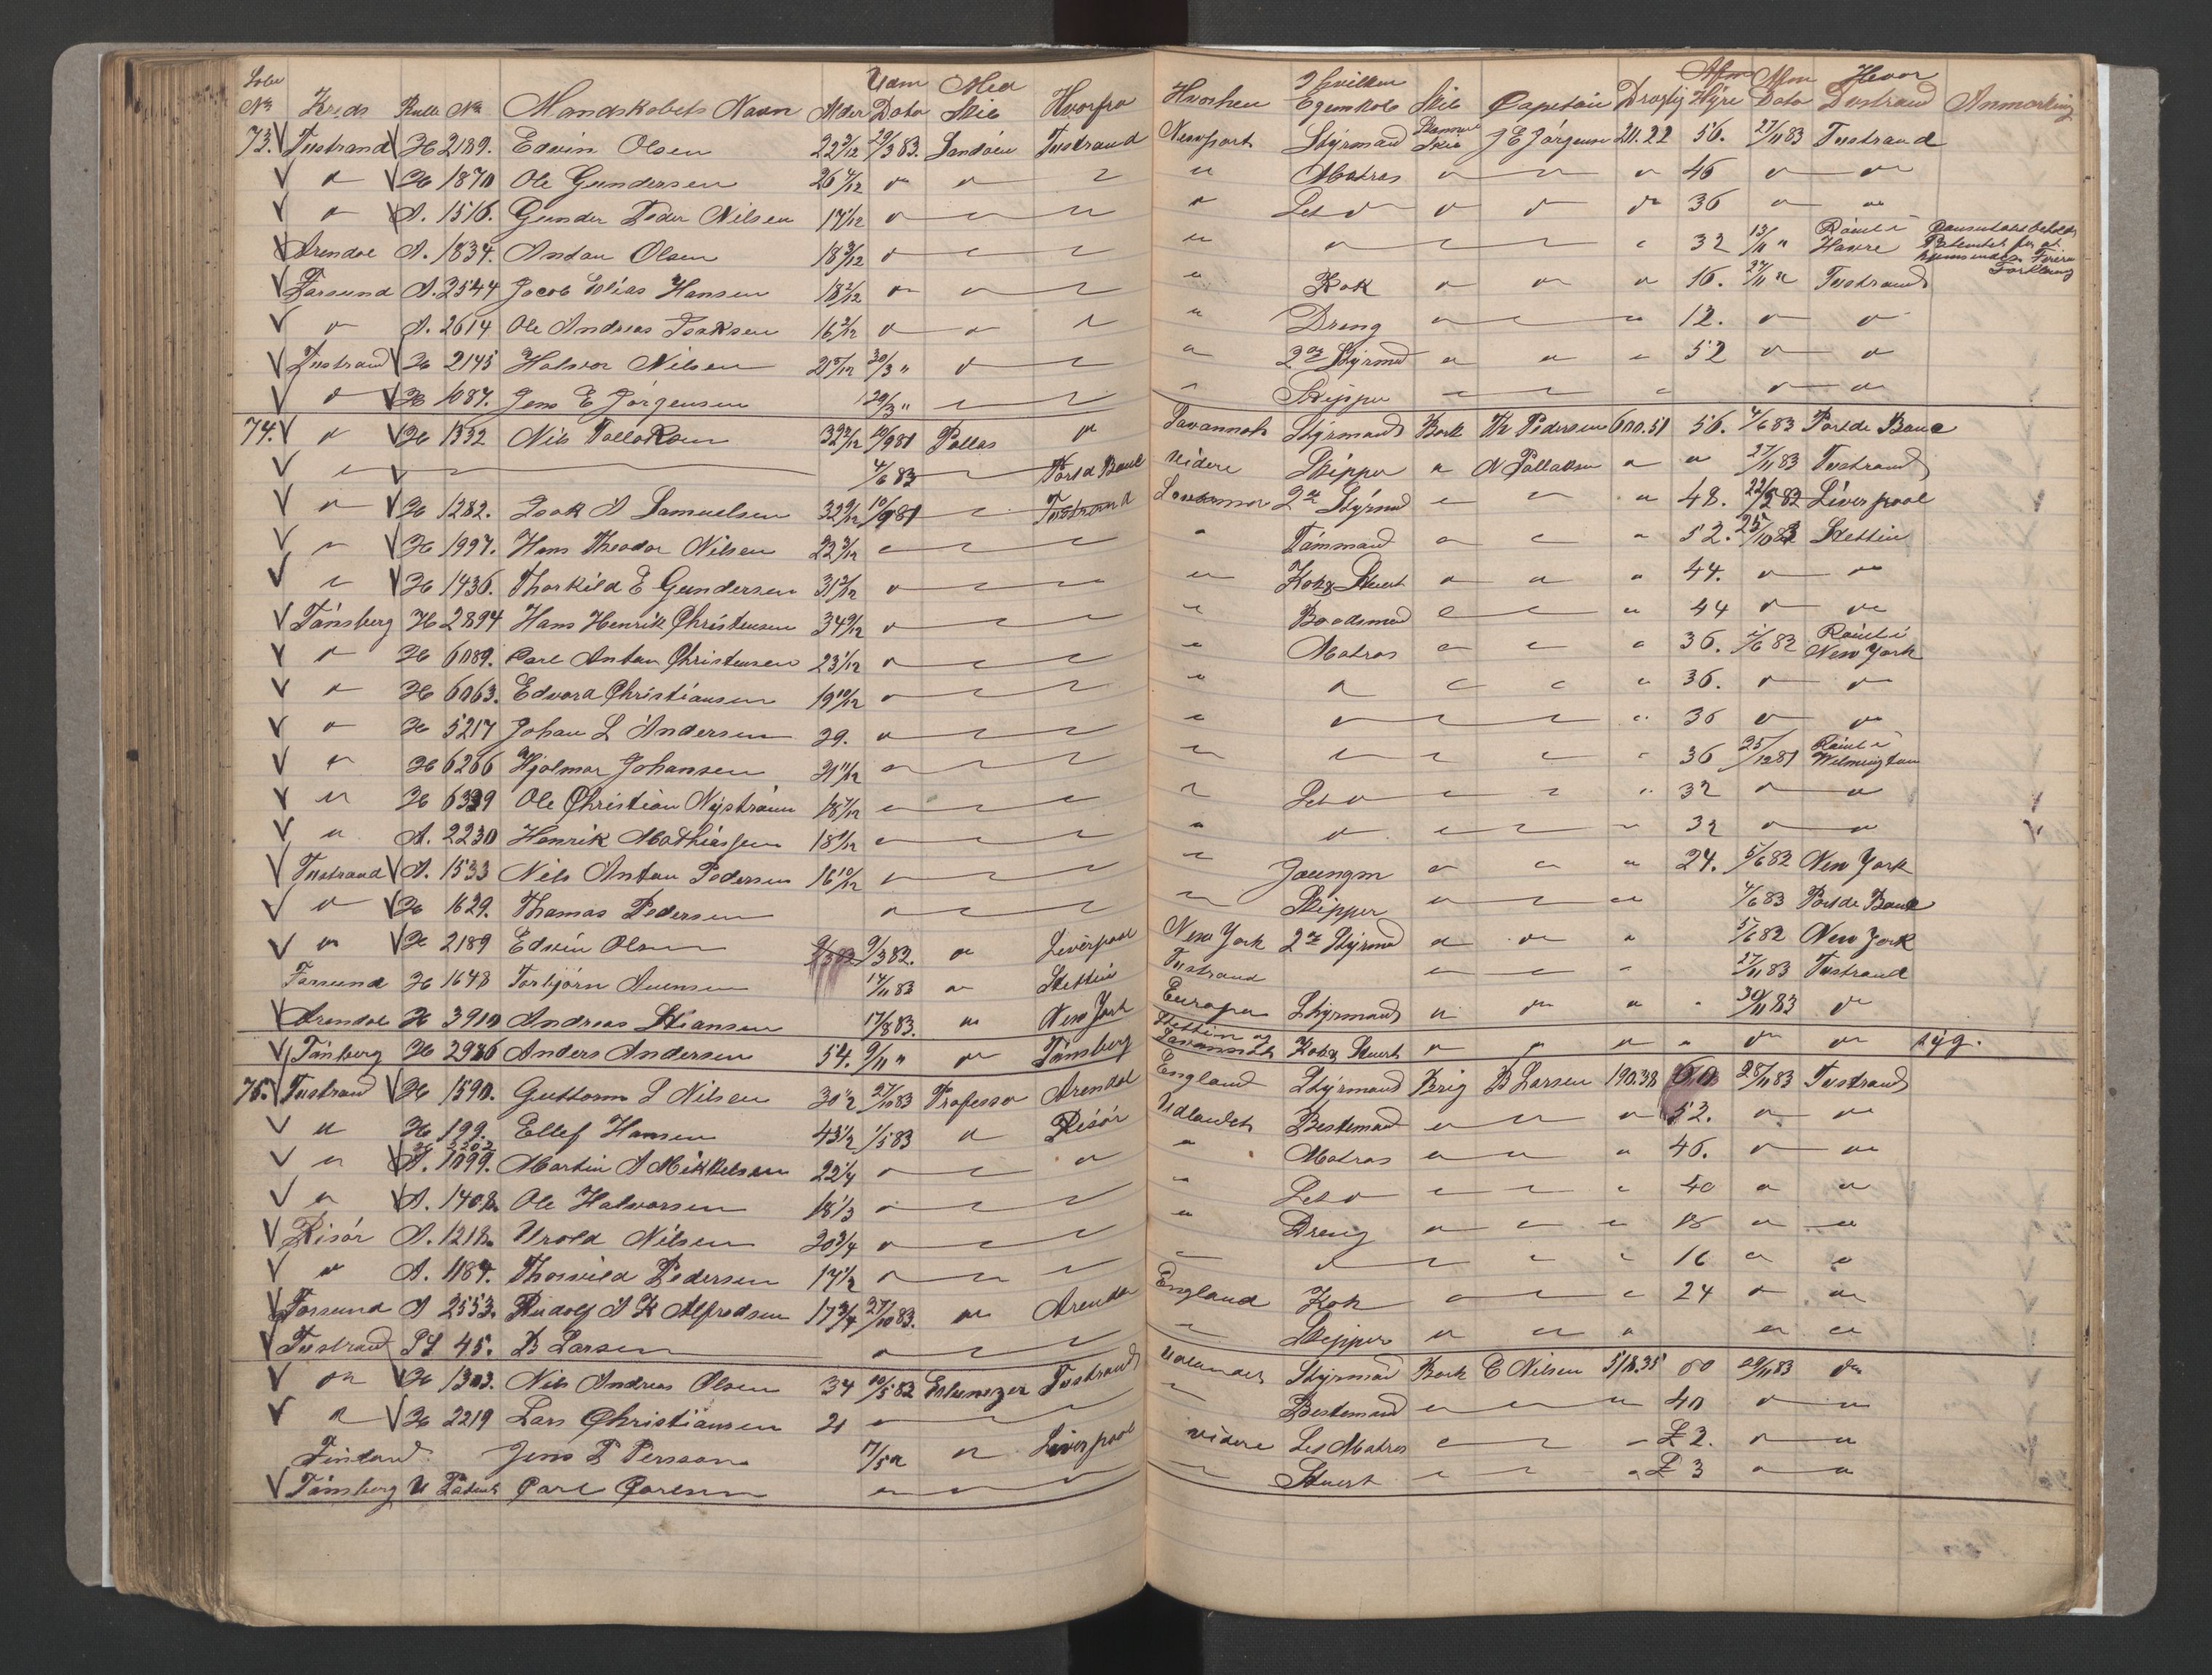 Løbe Udm Med Hvilken Afm Hvor
No Kreds Rulle No Mandskabets Navn Alder Dato Skib Hvorfra Hvorhen Egenskab Skib Capetain Drægtig Hyre Dato Tvstrand Anmærkning
73. Tvstrand H 2189. Edvin Olsen 22 3/12 29/3 83. Sandøen Tvstrand Newport Styrmand J E Jørgensen 211.22 56. 27/11 83 Tvstrand
" H 1870 Ole Gundersen 26 4/12 " " " " Matros " " " 46 " "
" A. 1516. Gunder Peder Nilsen 17 1/12 " " " " Let do " " " 36 " "
Arendal A. 1834. Antan Olsen 18 3/12 " " " " " " " " 32 13/11 " Rømt i Havre
Farsund A. 2544 Jacob Elias Hansen 18 2/12 " " " " Kok " " " 16. 27/11 " Tvstrand
" A. 2614 Ole Andreas Isaksen 16 2/12 " " " " Dreng " " " 12. " "
Tvstrand H 2145 Halvor Nilsen 21 5/12 30/3 " " " " 2den Styrmd " " " 52 " "
" H 1087. Jens E Jørgensen 29/3 " " " " Skipper " " " " "
74. " H 1332 Nils Tallaksen 32 2/12 10/9 81 Pallas " Savannah Styrmand Bark Th Pedersen 600.51 56. 4/6 83 Port de Bouc
" " 4/6 83 " Port d Bouc videre Skipper " N Tallaksen " " 27/11 83 Tvstrand
" H 1282. Isak A Samuelsen 32 9/12 10/9 81 " Tvstrand 2den Styrmd " " " 48. 22/2 82 Liverpool
" H 1997. Hans Theodor Nilsen 22 3/12 " " " " Tømmand " " " 52. 25/10 83 Stettin
" H 1436. Thorkild E Gundersen 31 2/12 " " " " Kok & Stuert " " " 44. " "
Tønsberg H 2894 Hans Henrik Christensen 34 9/12 " " " " Baadsmand " " " 44 " "
" H 6089. Carl Antan Christensen 23 1/12 " " " " Matros " " " 36. 1/6 82 Rømt i New York
" H 6063. Edvard Christiansen 19 10/12 " " " " " " " " 36. " "
" H 5217 Johan L Andersen 29. " " " " " " " " 36 " "
" H 6266 Hjalmar Johansen 21 11/12 " " " " " " " " 36 25/12 81 Rømt i Wilmington
" H 6339 Ole Christian Nystrøm 18 7/12 " " " " Let do " " " 32 " "
" A. 2230 Henrik Mathiassen 18 1/12 " " " " " " " " 32 " "
Tvstrand A. 1533 Nils Antan Pedersen 16 10/12 " " " " Joungm " " " 24. 5/6 82 New York
" H 1629. Thomas Pedersen " " " " Skipper " " " 4/6 83 Port de Bouc
" H 2189 Edvin Olsen 9/3 82. " Liverpool New York 2den Styrmd " " " 5/6 82 New York
Farsund H 1648 Torbjørn Auensen 14/11 83 " Stettin Tvstrand " " " 27/11 83 Tvstrand
Arendal H 3910 Andreas Stiansen 17/8 83. " New York Europa Styrmand " " " " 30/11 83 "
Tønberg H 2986 Anders Andersen 54. 9/11 " " Tønsberg Stettin og Savannah Kok & Stuert " " " " " " syg.
75. Tvstrand H 1590. Guttorm L Nilsen 30 1/2 27/10 83 Professor Arendal England Styrmand Brig B Larsen 190.38 60 28/11 83 Tvstrand
" H 199. Ellef Hansen 43 1/2 1/5 83 " Risør Udlandet Bestemand " " " 52. " "
" A. 1099. Martin A Mikkelsen 22 1/4 " " " " Matros " " " 46. " "
" A. 1408. Ole Halvorsen 18 1/3 " " " " Let do " " " 40 " "
Risør A. 1218. Arold Nilsen 20 3/4 " " " " Dreng " " " 18 " "
" A. 1184. Thorvild Pedersen 17 1/2 " " " " " " " " 16 " "
Farsund A 2553. Rudolf A K Alfredsen 17 3/4 27/10 83. " Arendal England Kok " " " 24 " "
Tvstrand SL 45. B Larsen " " " " Skipper " " " " "
" H 1303. Nils Andreas Olsen 34 10/5 82 Ebenezer Tvstrand Udlandet Styrmand Bark C Nilsen 518.35 60 29/11 83 "
" H 2219 Lars Christiansen 21 " " " " Bestemand " " " 40 " "
Finland Jens P Persson 7/5 " " Liverpool videre Let Matros " " " £ 2. " "
Tønsberg U Patent Carl Carlsen " " " " Stuert " " " £ 3 " "